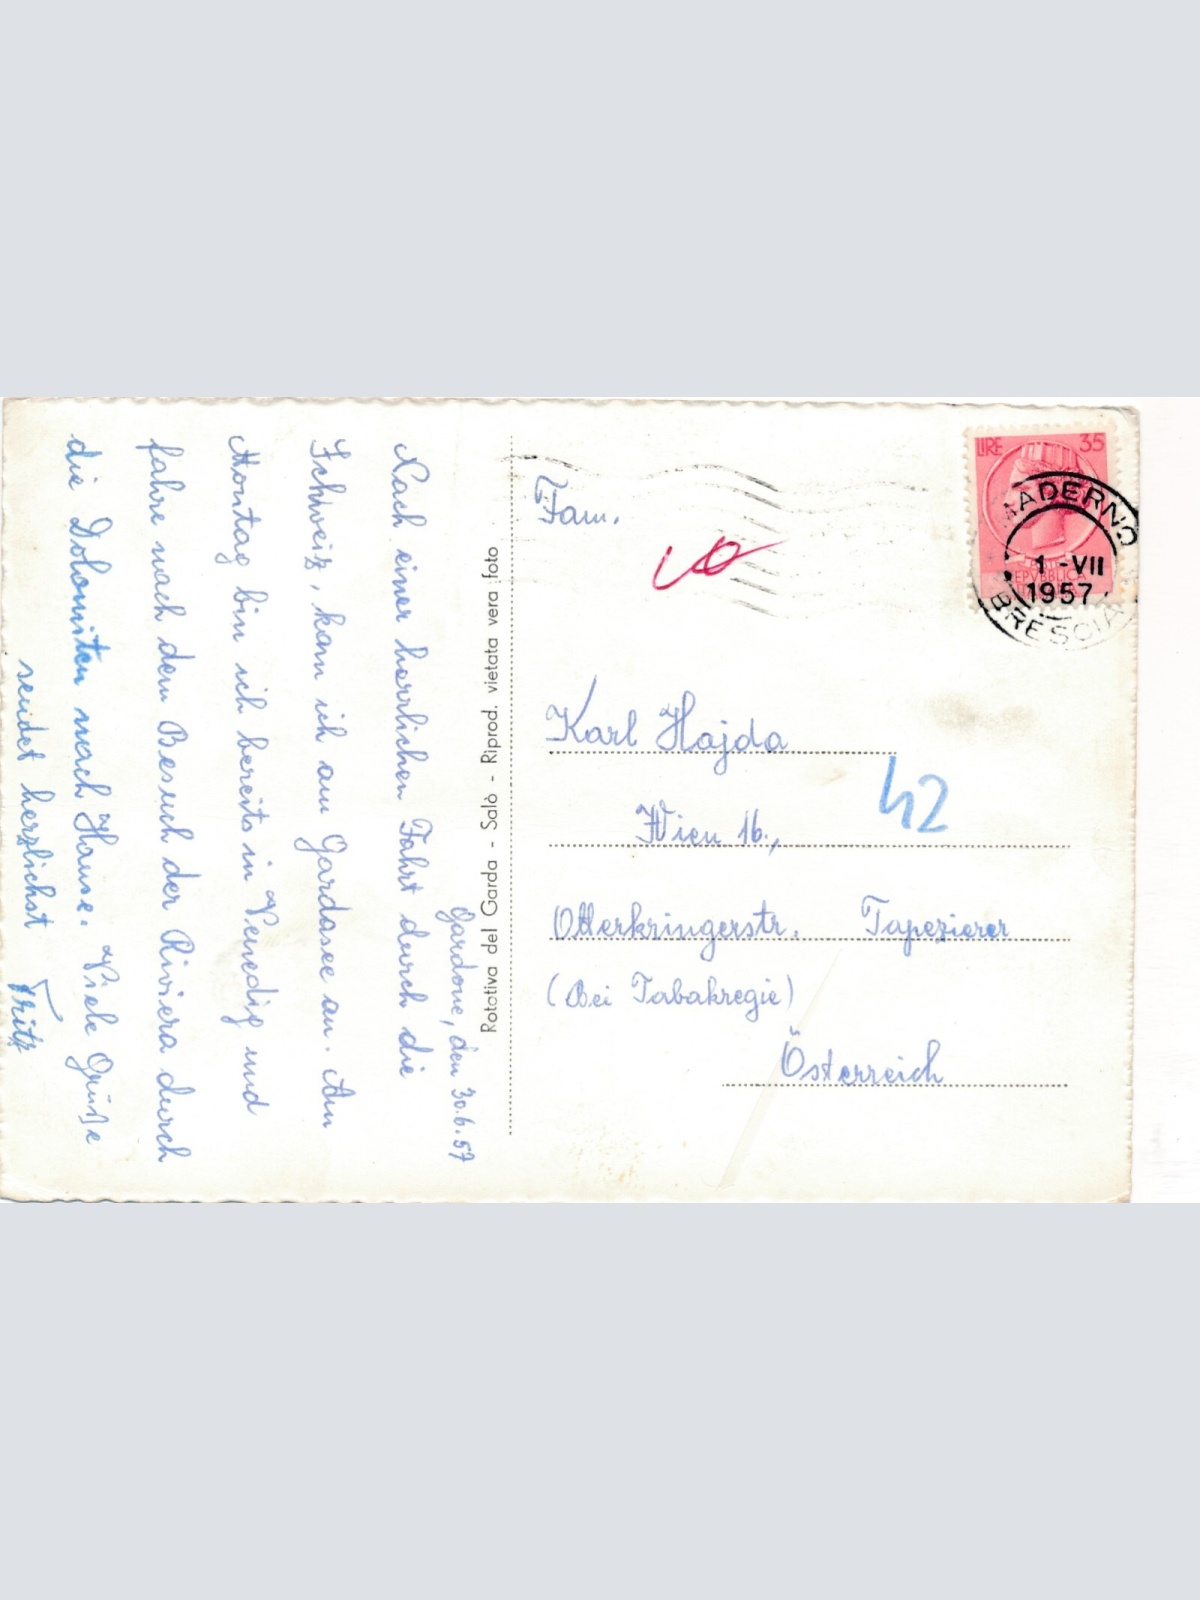 Gardone, den 30.6.57
Nach einer herrlichen Fahrt durch die
Schweiz, kam ich am Gardasee an. Am
Montag bin ich bereits in Venedig und
fahre nach dem Besuch der Riviera durch
die Dolomiten nach Hause. Viele Grüße
sendet herzlichst Fritz
Rotativa del Garda - Salò - Riprod. vietata vera foto
LIRE 35
MADERNO
1 -VII
1957
BRESCIA
Fam.
Karl Hajda
42
Wien 16.,
Otterkringerstr. Tapezierer
(Bei Tabakregie)
Österreich